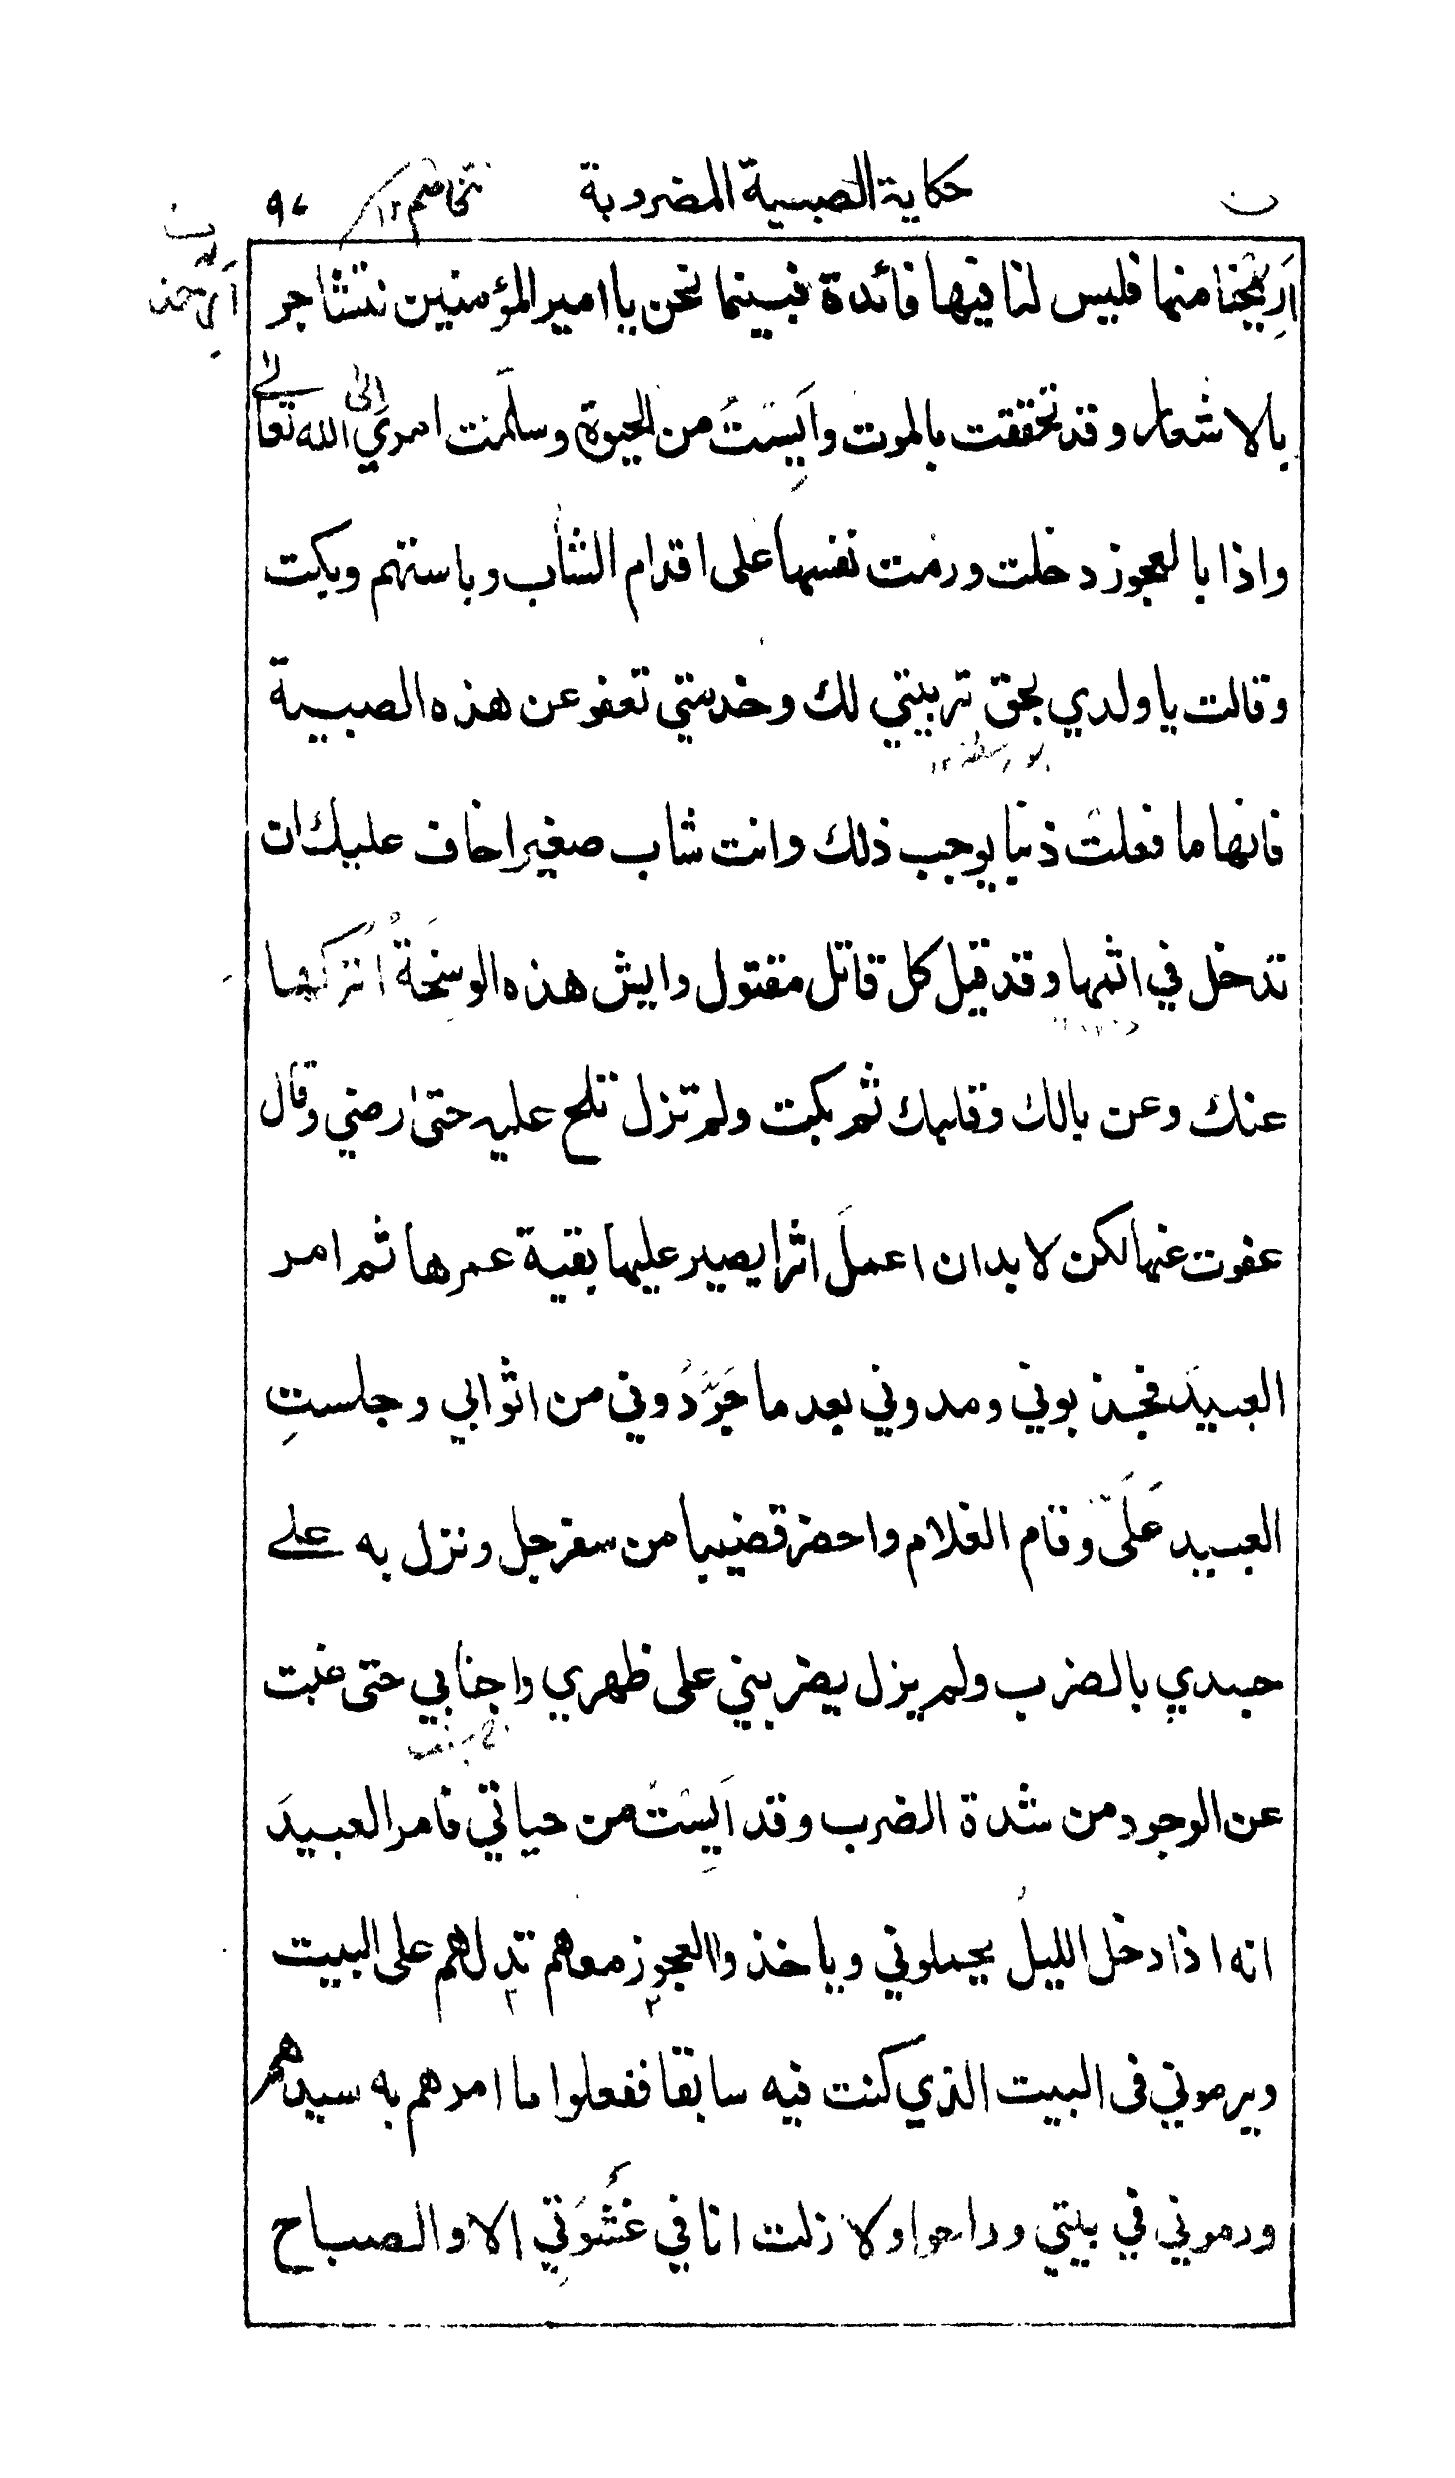 حكاية الصبية المضروبة ٩٧
اَرِحْنا منها فليس لنا فيها فائدة فبينما نحن يا امير المؤمنين نتشاجر
بالاشعار وقد تحققت بالموت واَيِسْتُ من الحيوة وسلّمت امري الى الله تعالى
واذا بالعجوز دخلت ورمت نفسها على اقدام الشاب وباستهم وبكت
وقالت يا ولدي بحق تربيتي لك وخدمتي تعفو عن هذه الصبية
فانها ما فعلت ذنبا يوجب ذلك وانت شاب صغير اخاف عليك ان
تدخل في اثمها وقد قيل كل قاتل مقتول وايش هذه الوسِخَةُ اتركها
عنك وعن بالك وقلبك ثم بكت ولم تزل تلح عليه حتى رضي وقال
عفوت عنها لكن لا بد ان اعملَ اثرا يصير عليها بقية عمرها ثم امر
العبيدَ فجذبوني ومدوني بعد ما جَرَّدُوني من اثوابي وجلستِ
العبيد عَلَىَّ وقام الغلام واحضر قضيبا من سفرجل ونزل به على
جسدي بالضرب ولم يزل يضربني على ظهري واجنابي حتى غبت
عن الوجود من شدة الضرب وقد اَيِسْتُ من حياتي فامر العبيدَ
انه اذا دخل الليلُ يحملوني وياخذوا العجوز معهم تدلهم على البيت
ويرموني فى البيت الذي كنت فيه سابقا ففعلوا ما امرهم به سيدهم
ورموني في بيتي وراحوا ولا زلت انا في غَشْوَتِي الا والصباح